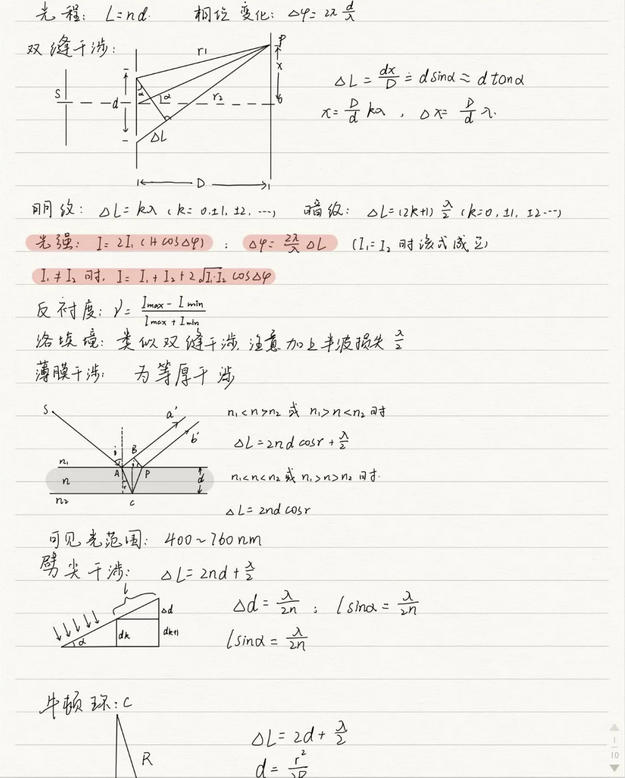 光程: L=nd. 相位变化: Δφ=2π d/λ
双缝干涉:
P
r₁
x
S
d
α
α
r₂
0
ΔL
D
ΔL = dx/D ≐ d sinα ≐ d tanα
x = D/d kλ , Δx = D/d λ.
明纹: ΔL = kλ (k=0,±1,±2,…) 暗纹: ΔL=(2k+1) λ/2 (k=0,±1,±2…)
光强: I=2I₁(1+cosΔφ) ; Δφ= 2π/λ ΔL (I₁=I₂ 时该式成立)
I₁≠I₂ 时, I= I₁+I₂+2√I₁I₂ cosΔφ
反衬度: γ= (Imax - Imin)/(Imax + Imin)
洛埃镜: 类似双缝干涉,注意加上半波损失 λ/2
薄膜干涉: 为等厚干涉
S
a'
b'
i
B
n₁
A
P
n
r
d
n₂
C
n₁<n>n₂ 或 n₁>n<n₂ 时
ΔL=2nd cosr + λ/2
n₁<n<n₂ 或 n₁>n>n₂ 时.
ΔL=2nd cosr
可见光范围: 400~760nm
劈尖干涉: ΔL=2nd+ λ/2
l
Δd
dk
dk+1
α
Δd = λ/2n ; l sinα = λ/2n
l sinα = λ/2n
牛顿环: C
R
ΔL = 2d + λ/2
d = r²/2R
1
10